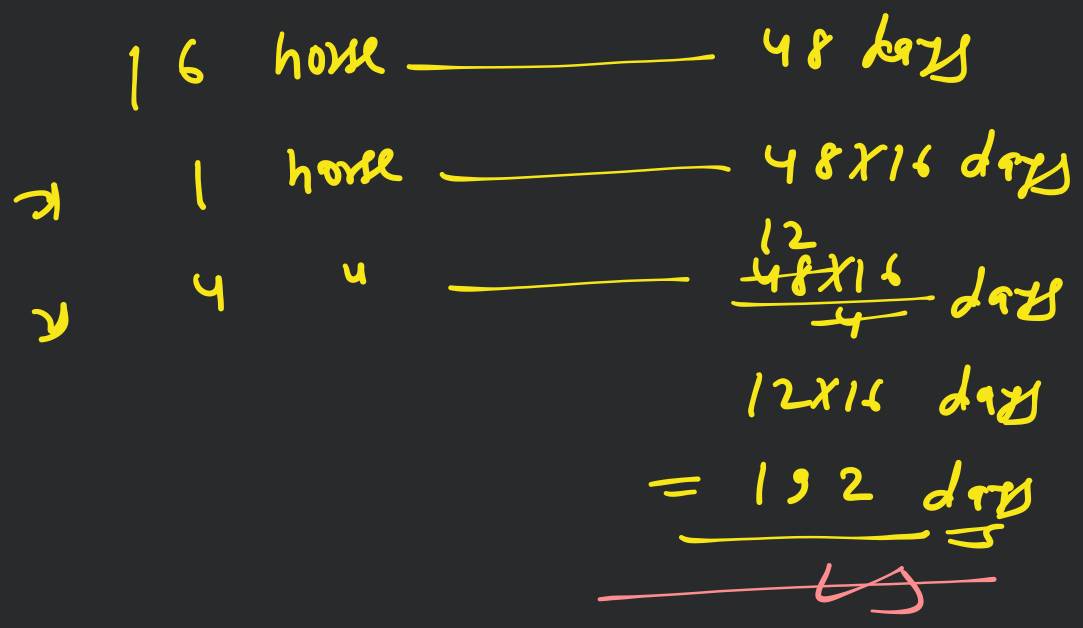 16 horse — 48 days
1 horse — 48X16 days
4 " — 12
48X16/4 days
12X16 days
= 192 days